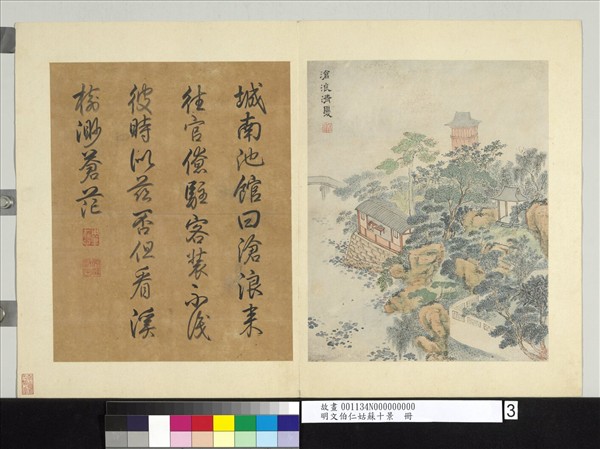 滄浪清夏
城南池館曰滄浪來
往官僚駐客裝不識
彼時似茲否但看溪
樹渺蒼茫
故畫 001134N000000000
明文伯仁姑蘇十景 冊
3